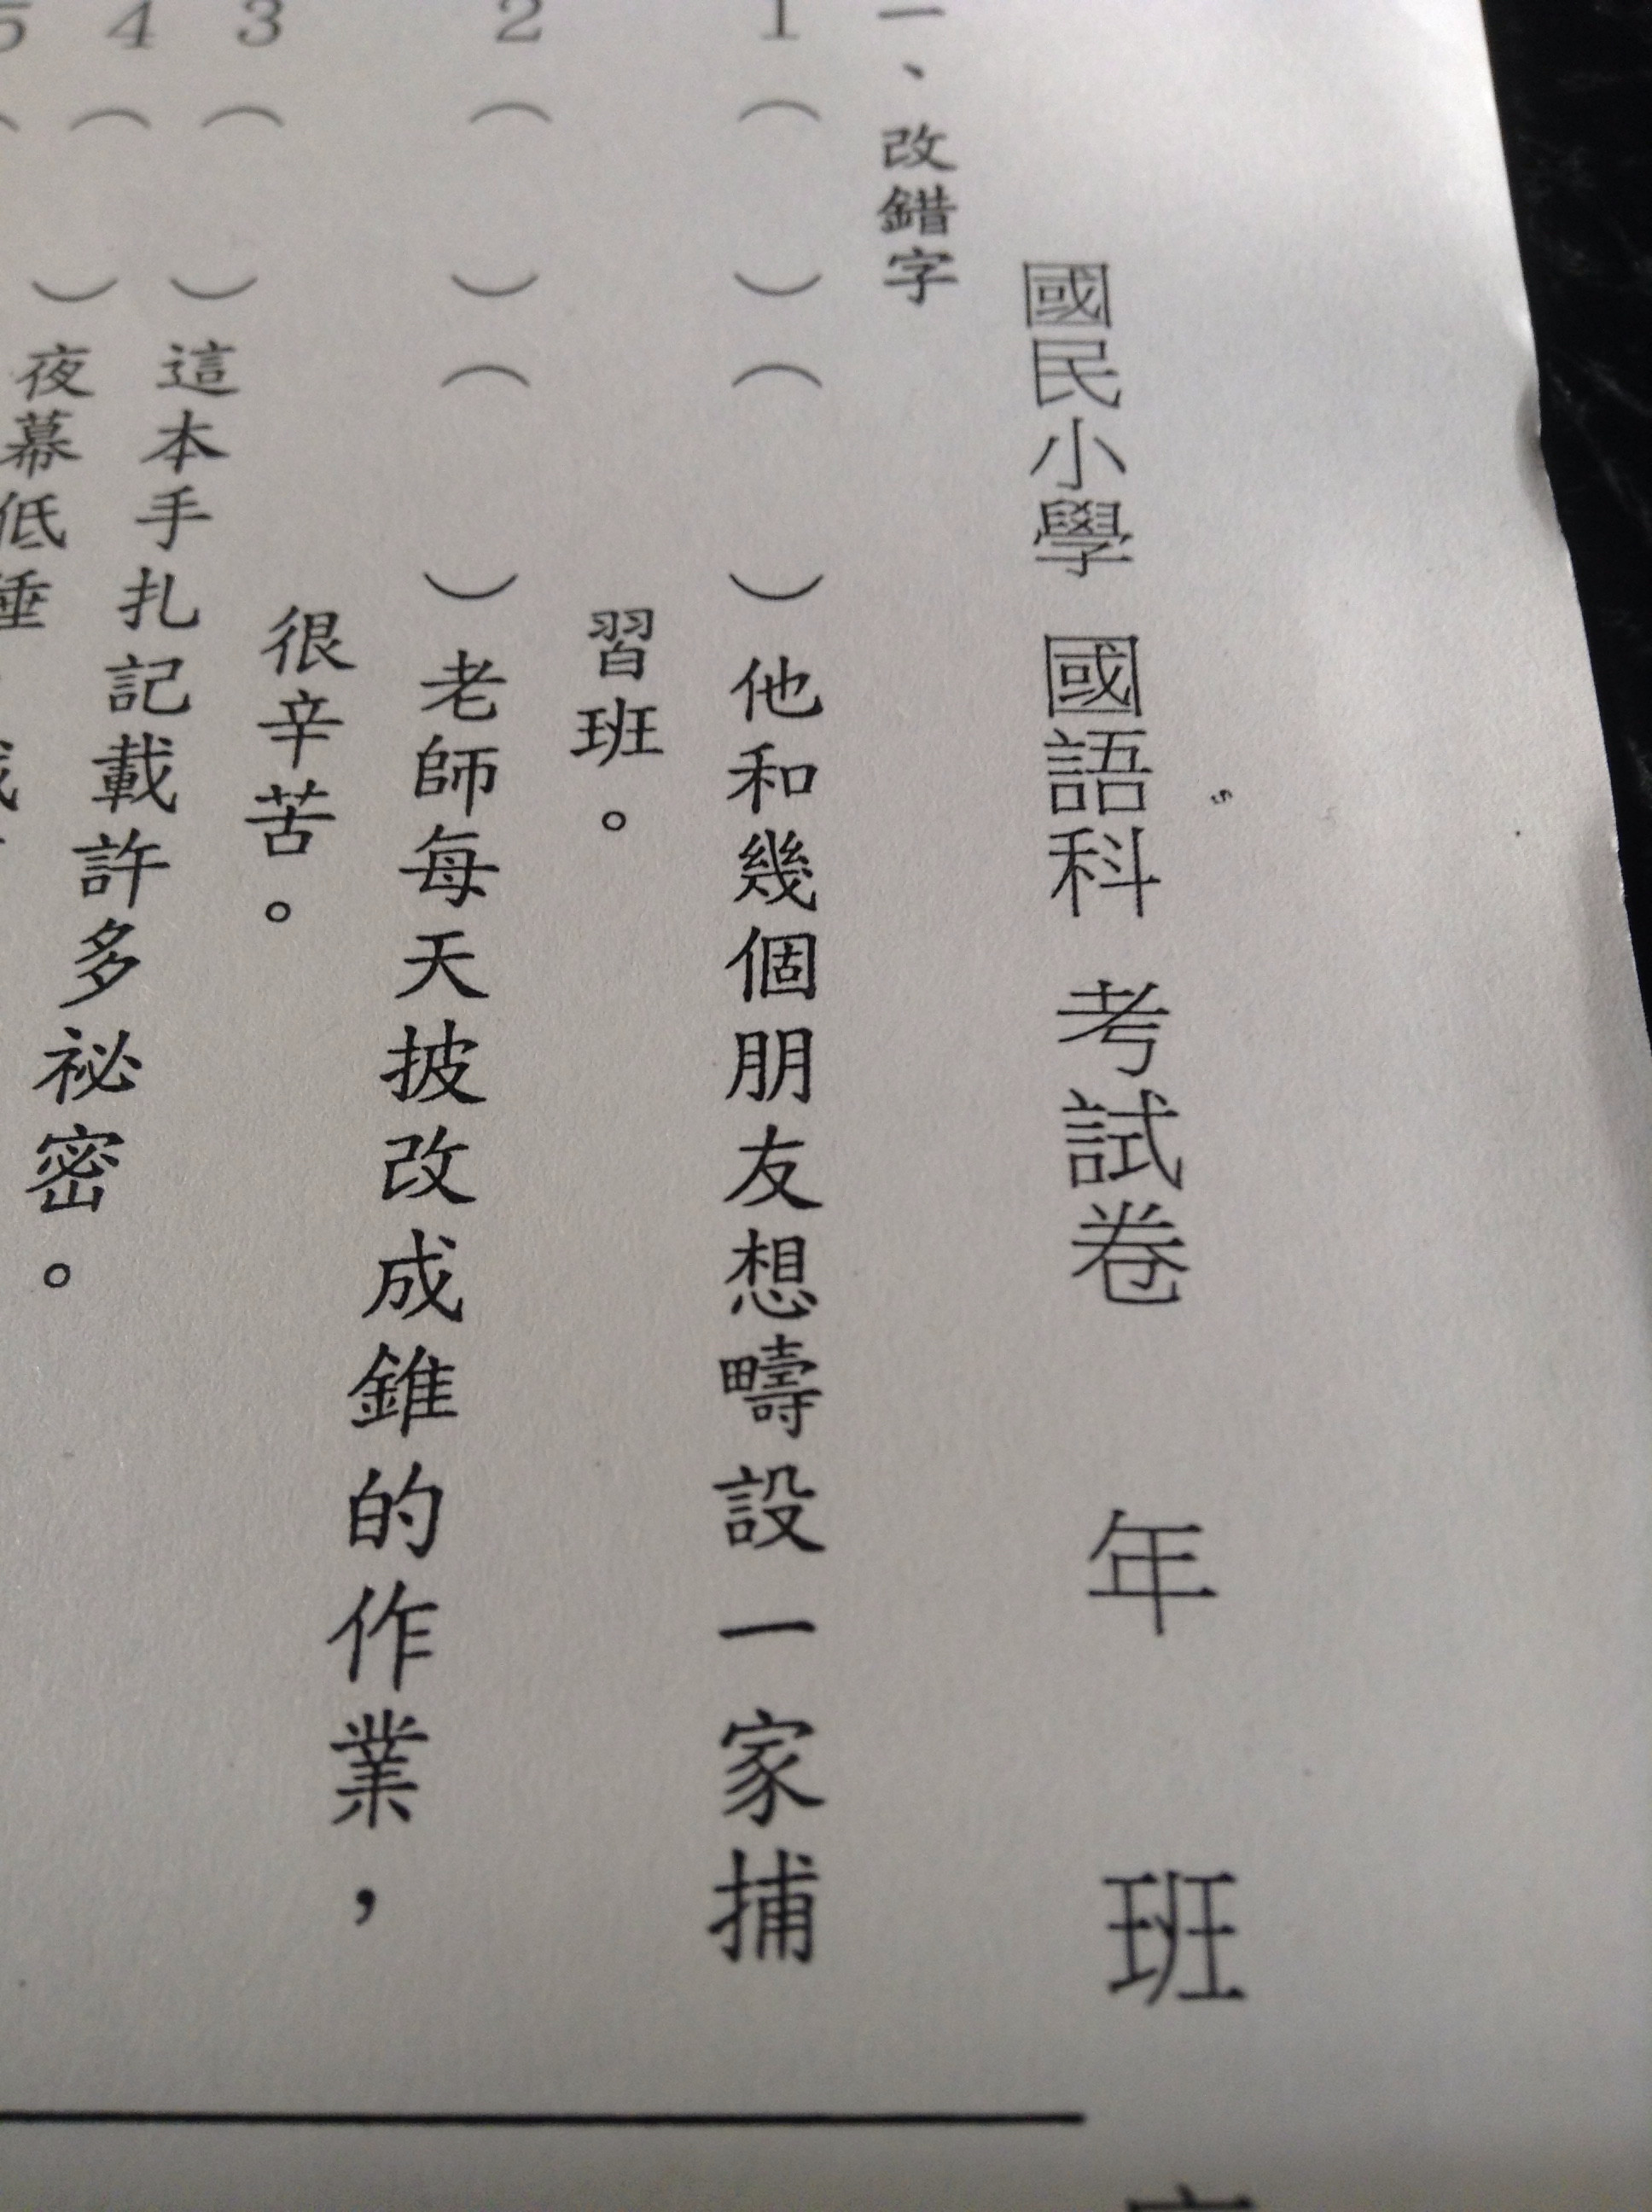 國民小學 國語科 考試卷 年 班
一、改錯字
1（ ）（ ）他和幾個朋友想疇設一家捕
習班。
2（ ）（ ）老師每天披改成錐的作業，
很辛苦。
3（ ）這本手扎記載許多祕密。
4（ ）夜幕低
5（